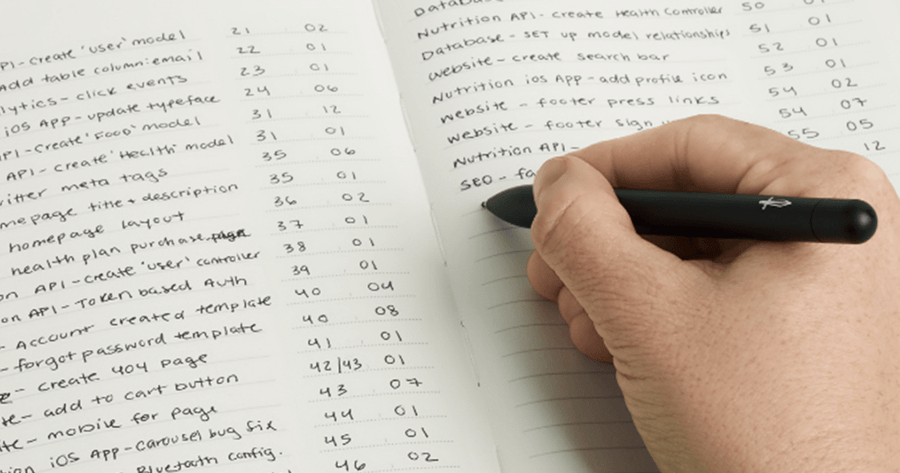 PI-create 'user' model 21 02
Add table column:email 22 01
lytics - click events 23 01
iOS App - update typeface 24 06
PI-Create 'Food' model 31 12
API - create 'Health' model 31 01
itter meta tags 35 06
mepage title + description 35 01
homepage layout 36 02
health plan purchase 37 01
on API-create 'user' controller 38 01
on API-Token based Auth 39 01
- Account created template 40 04
- forgot password template 40 08
- create 404 page 41 01
te- add to cart button 42/43 01
ite- mobile for page 43 07
ion iOS App-carousel bug fix 44 01
Bluetooth config. 45 01
46 02
Database
Nutrition API - create Health Controller 50
Database - SET up model relationships 51 01
website - create search bar 52 01
Nutrition iOS App - add profile icon 53 01
website - footer press links 54 02
website - footer sign 54 07
Nutrition API - 55 05
SEO - 12